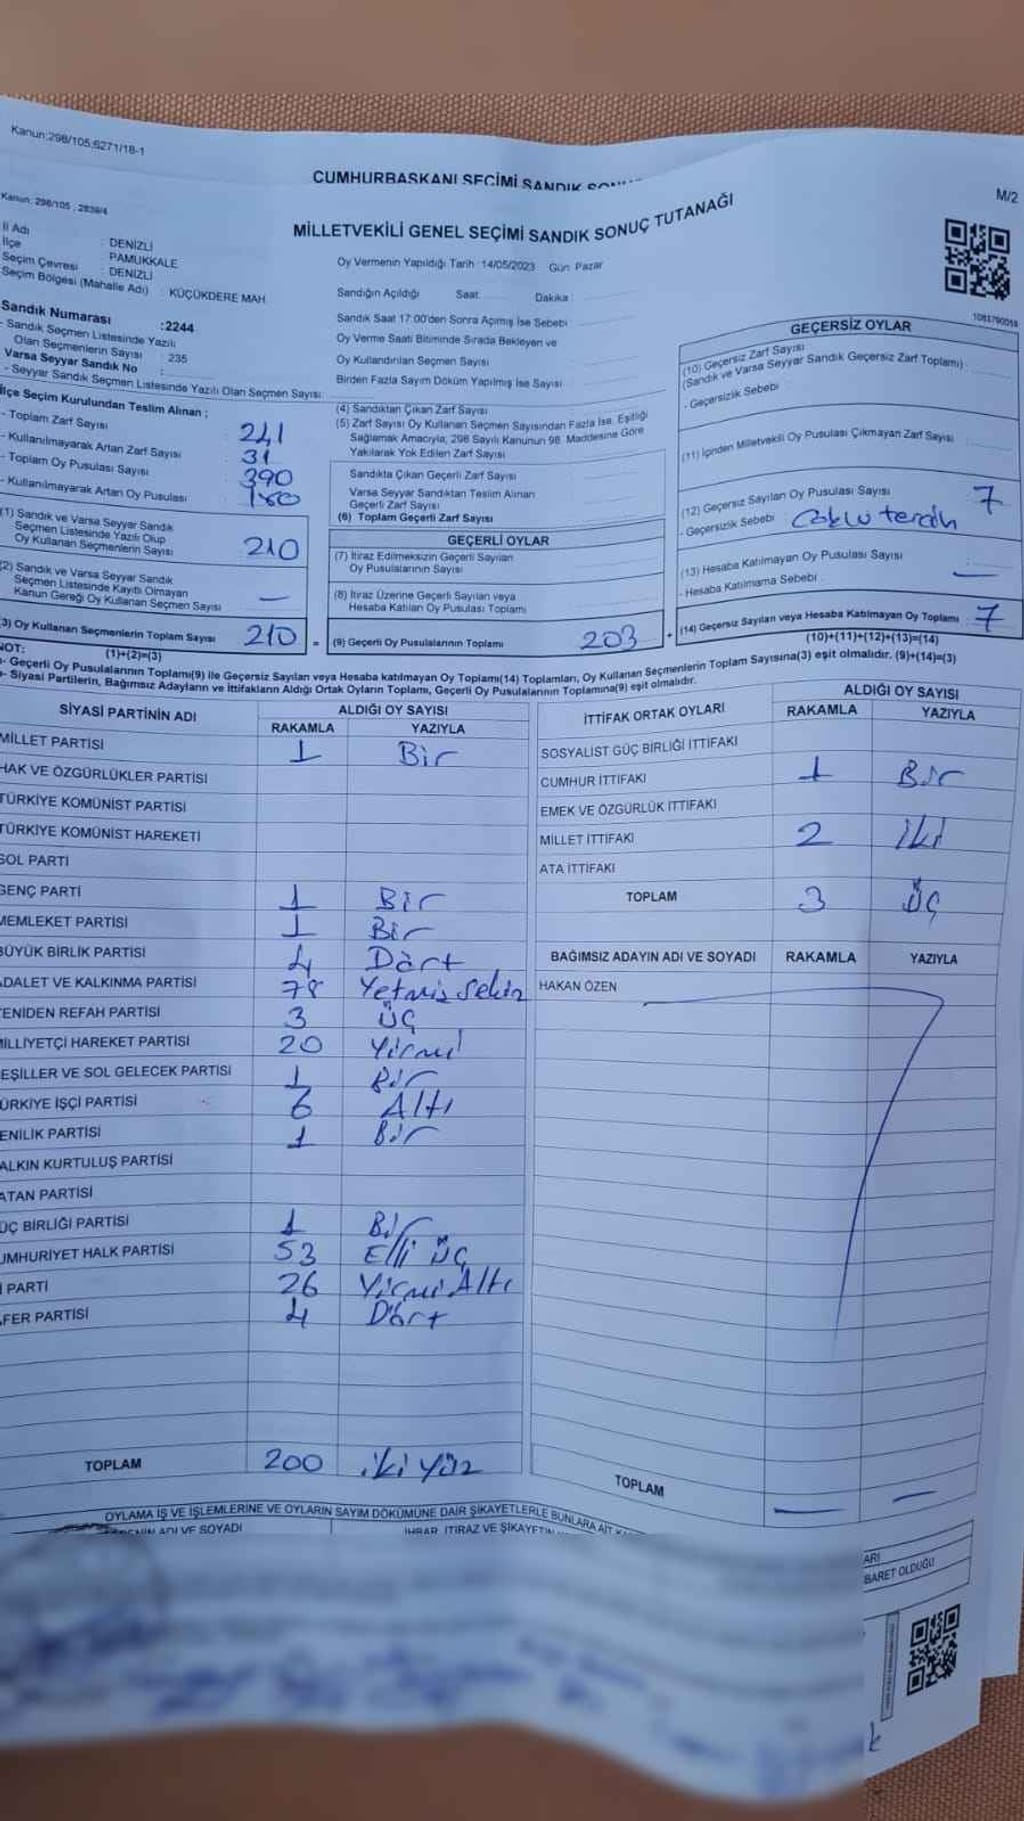 Kanun:298/105;6271/18-1
CUMHURBAŞKANI SEÇİMİ SANDIK
M/2
Kanun: 298/105 , 2839/4
MİLLETVEKİLİ GENEL SEÇİMİ SANDIK SONUÇ TUTANAĞI
İl Adı : DENİZLİ
İlçe : PAMUKKALE
Seçim Çevresi : DENİZLİ
Seçim Bölgesi (Mahalle Adı) : KÜÇÜKDERE MAH
Sandık Numarası :2244
- Sandık Seçmen Listesinde Yazılı
Olan Seçmenlerin Sayısı : 235
Varsa Seyyar Sandık No :
- Seyyar Sandık Seçmen Listesinde Yazılı Olan Seçmen Sayısı:
İlçe Seçim Kurulundan Teslim Alınan ;
- Toplam Zarf Sayısı : 241
- Kullanılmayarak Artan Zarf Sayısı : 31
- Toplam Oy Pusulası Sayısı : 390
- Kullanılmayarak Artan Oy Pusulası : 180
(1) Sandık ve Varsa Seyyar Sandık
Seçmen Listesinde Yazılı Olup
Oy Kullanan Seçmenlerin Sayısı 210
(2) Sandık ve Varsa Seyyar Sandık
Seçmen Listesinde Kayıtlı Olmayan
Kanun Gereği Oy Kullanan Seçmen Sayısı —
(3) Oy Kullanan Seçmenlerin Toplam Sayısı 210 =
(1)+(2)=(3)
Oy Vermenin Yapıldığı Tarih : 14/05/2023 Gün: Pazar
Sandığın Açıldığı Saat: Dakika :
Sandık Saat 17:00'den Sonra Açımış İse Sebebi :
Oy Verme Saati Bitiminde Sırada Bekleyen ve
Oy Kullandırılan Seçmen Sayısı :
Birden Fazla Sayım Döküm Yapılmış İse Sayısı :
(4) Sandıktan Çıkan Zarf Sayısı
(5) Zarf Sayısı Oy Kullanan Seçmen Sayısından Fazla İse, Eşitliği
Sağlamak Amacıyla; 298 Sayılı Kanunun 98. Maddesine Göre
Yakılarak Yok Edilen Zarf Sayısı
Sandıkta Çıkan Geçerli Zarf Sayısı
Varsa Seyyar Sandıktan Teslim Alınan
Geçerli Zarf Sayısı
(6) Toplam Geçerli Zarf Sayısı
GEÇERLİ OYLAR
(7) İtiraz Edilmeksizin Geçerli Sayılan
Oy Pusulalarının Sayısı
(8) İtiraz Üzerine Geçerli Sayılan veya
Hesaba Katılan Oy Pusulası Toplamı
(9) Geçerli Oy Pusulalarının Toplamı 203 +
1083790059
GEÇERSİZ OYLAR
(10) Geçersiz Zarf Sayısı
(Sandık ve Varsa Seyyar Sandık Geçersiz Zarf Toplamı) :
- Geçersizlik Sebebi
(11) İçinden Milletvekili Oy Pusulası Çıkmayan Zarf Sayısı :
(12) Geçersiz Sayılan Oy Pusulası Sayısı : 7
- Geçersizlik Sebebi Çoklu tercih
(13) Hesaba Katılmayan Oy Pusulası Sayısı :
- Hesaba Katılmama Sebebi : —
(14) Geçersiz Sayılan veya Hesaba Katılmayan Oy Toplamı : 7
(10)+(11)+(12)+(13)=(14)
NOT:
- Geçerli Oy Pusulalarının Toplamı(9) ile Geçersiz Sayılan veya Hesaba katılmayan Oy Toplamı(14) Toplamları, Oy Kullanan Seçmenlerin Toplam Sayısına(3) eşit olmalıdır. (9)+(14)=(3)
- Siyasi Partilerin, Bağımsız Adayların ve İttifakların Aldığı Ortak Oyların Toplamı, Geçerli Oy Pusulalarının Toplamına(9) eşit olmalıdır.
SİYASİ PARTİNİN ADI ALDIĞI OY SAYISI
RAKAMLA YAZIYLA
MİLLET PARTİSİ 1 Bir
HAK VE ÖZGÜRLÜKLER PARTİSİ
TÜRKİYE KOMÜNİST PARTİSİ
TÜRKİYE KOMÜNİST HAREKETİ
SOL PARTİ
GENÇ PARTİ 1 Bir
MEMLEKET PARTİSİ 1 Bir
BÜYÜK BİRLİK PARTİSİ 4 Dört
ADALET VE KALKINMA PARTİSİ 78 Yetmiş Sekiz
YENİDEN REFAH PARTİSİ 3 Üç
MİLLİYETÇİ HAREKET PARTİSİ 20 Yirmi
YEŞİLLER VE SOL GELECEK PARTİSİ 1 Bir
TÜRKİYE İŞÇİ PARTİSİ 6 Altı
YENİLİK PARTİSİ 1 Bir
HALKIN KURTULUŞ PARTİSİ
VATAN PARTİSİ
GÜÇ BİRLİĞİ PARTİSİ 1 Bir
CUMHURİYET HALK PARTİSİ 53 Elli Üç
İ PARTİ 26 Yirmi Altı
ZAFER PARTİSİ 4 Dört
TOPLAM 200 iki yüz
İTTİFAK ORTAK OYLARI ALDIĞI OY SAYISI
RAKAMLA YAZIYLA
SOSYALİST GÜÇ BİRLİĞİ İTTİFAKI
CUMHUR İTTİFAKI 1 Bir
EMEK VE ÖZGÜRLÜK İTTİFAKI
MİLLET İTTİFAKI 2 İki
ATA İTTİFAKI
TOPLAM 3 Üç
BAĞIMSIZ ADAYIN ADI VE SOYADI RAKAMLA YAZIYLA
HAKAN ÖZEN
TOPLAM — —
OYLAMA İŞ VE İŞLEMLERİNE VE OYLARIN SAYIM DÖKÜMÜNE DAİR ŞİKAYETLERLE BUNLARA AİT
ADI VE SOYADI İHBAR, İTİRAZ VE ŞİKAYETİN
ARI
BARET OLDUĞU